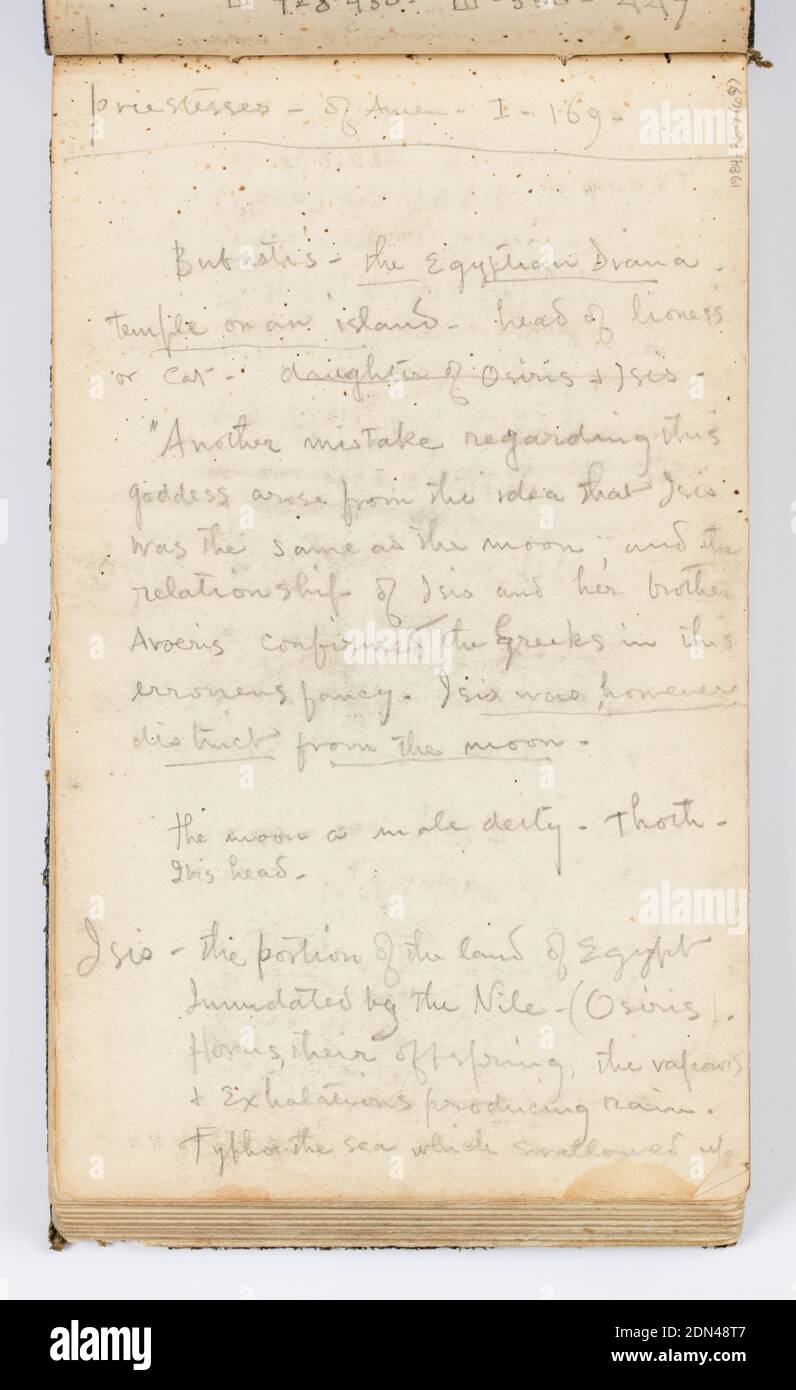 priestesses - of Amen - I - 169 -
Bubastis - the Egyptian Diana -
temple on an island - head of lioness
or cat - daughter of Osiris + Isis -
"Another mistake regarding this
goddess arose from the idea that Isis
was the same as the moon; and the
relationship of Isis and her brother
Aroeris confirmed the Greeks in this
erroneus fancy. Isis was, however,
distinct from the moon -
the moon a male deity - Thoth -
Ibis head -
Isis - the portion of the land of Egypt
Inundated by the Nile - (Osiris).
Horus, their offspring, the vapours
+ Exhalations producing rain.
Typho the sea which swallowed up
alamy
alamy
alamy
Image ID: 2DN48T7
www.alamy.com